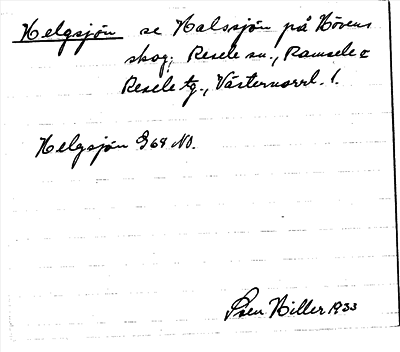 Helgsjön se Halssjön på Hövens
skog; Resele sn., Ramsele o
Resele tg., Västernorrl. l.
Helgsjön G68 NO.
Hiller 1933